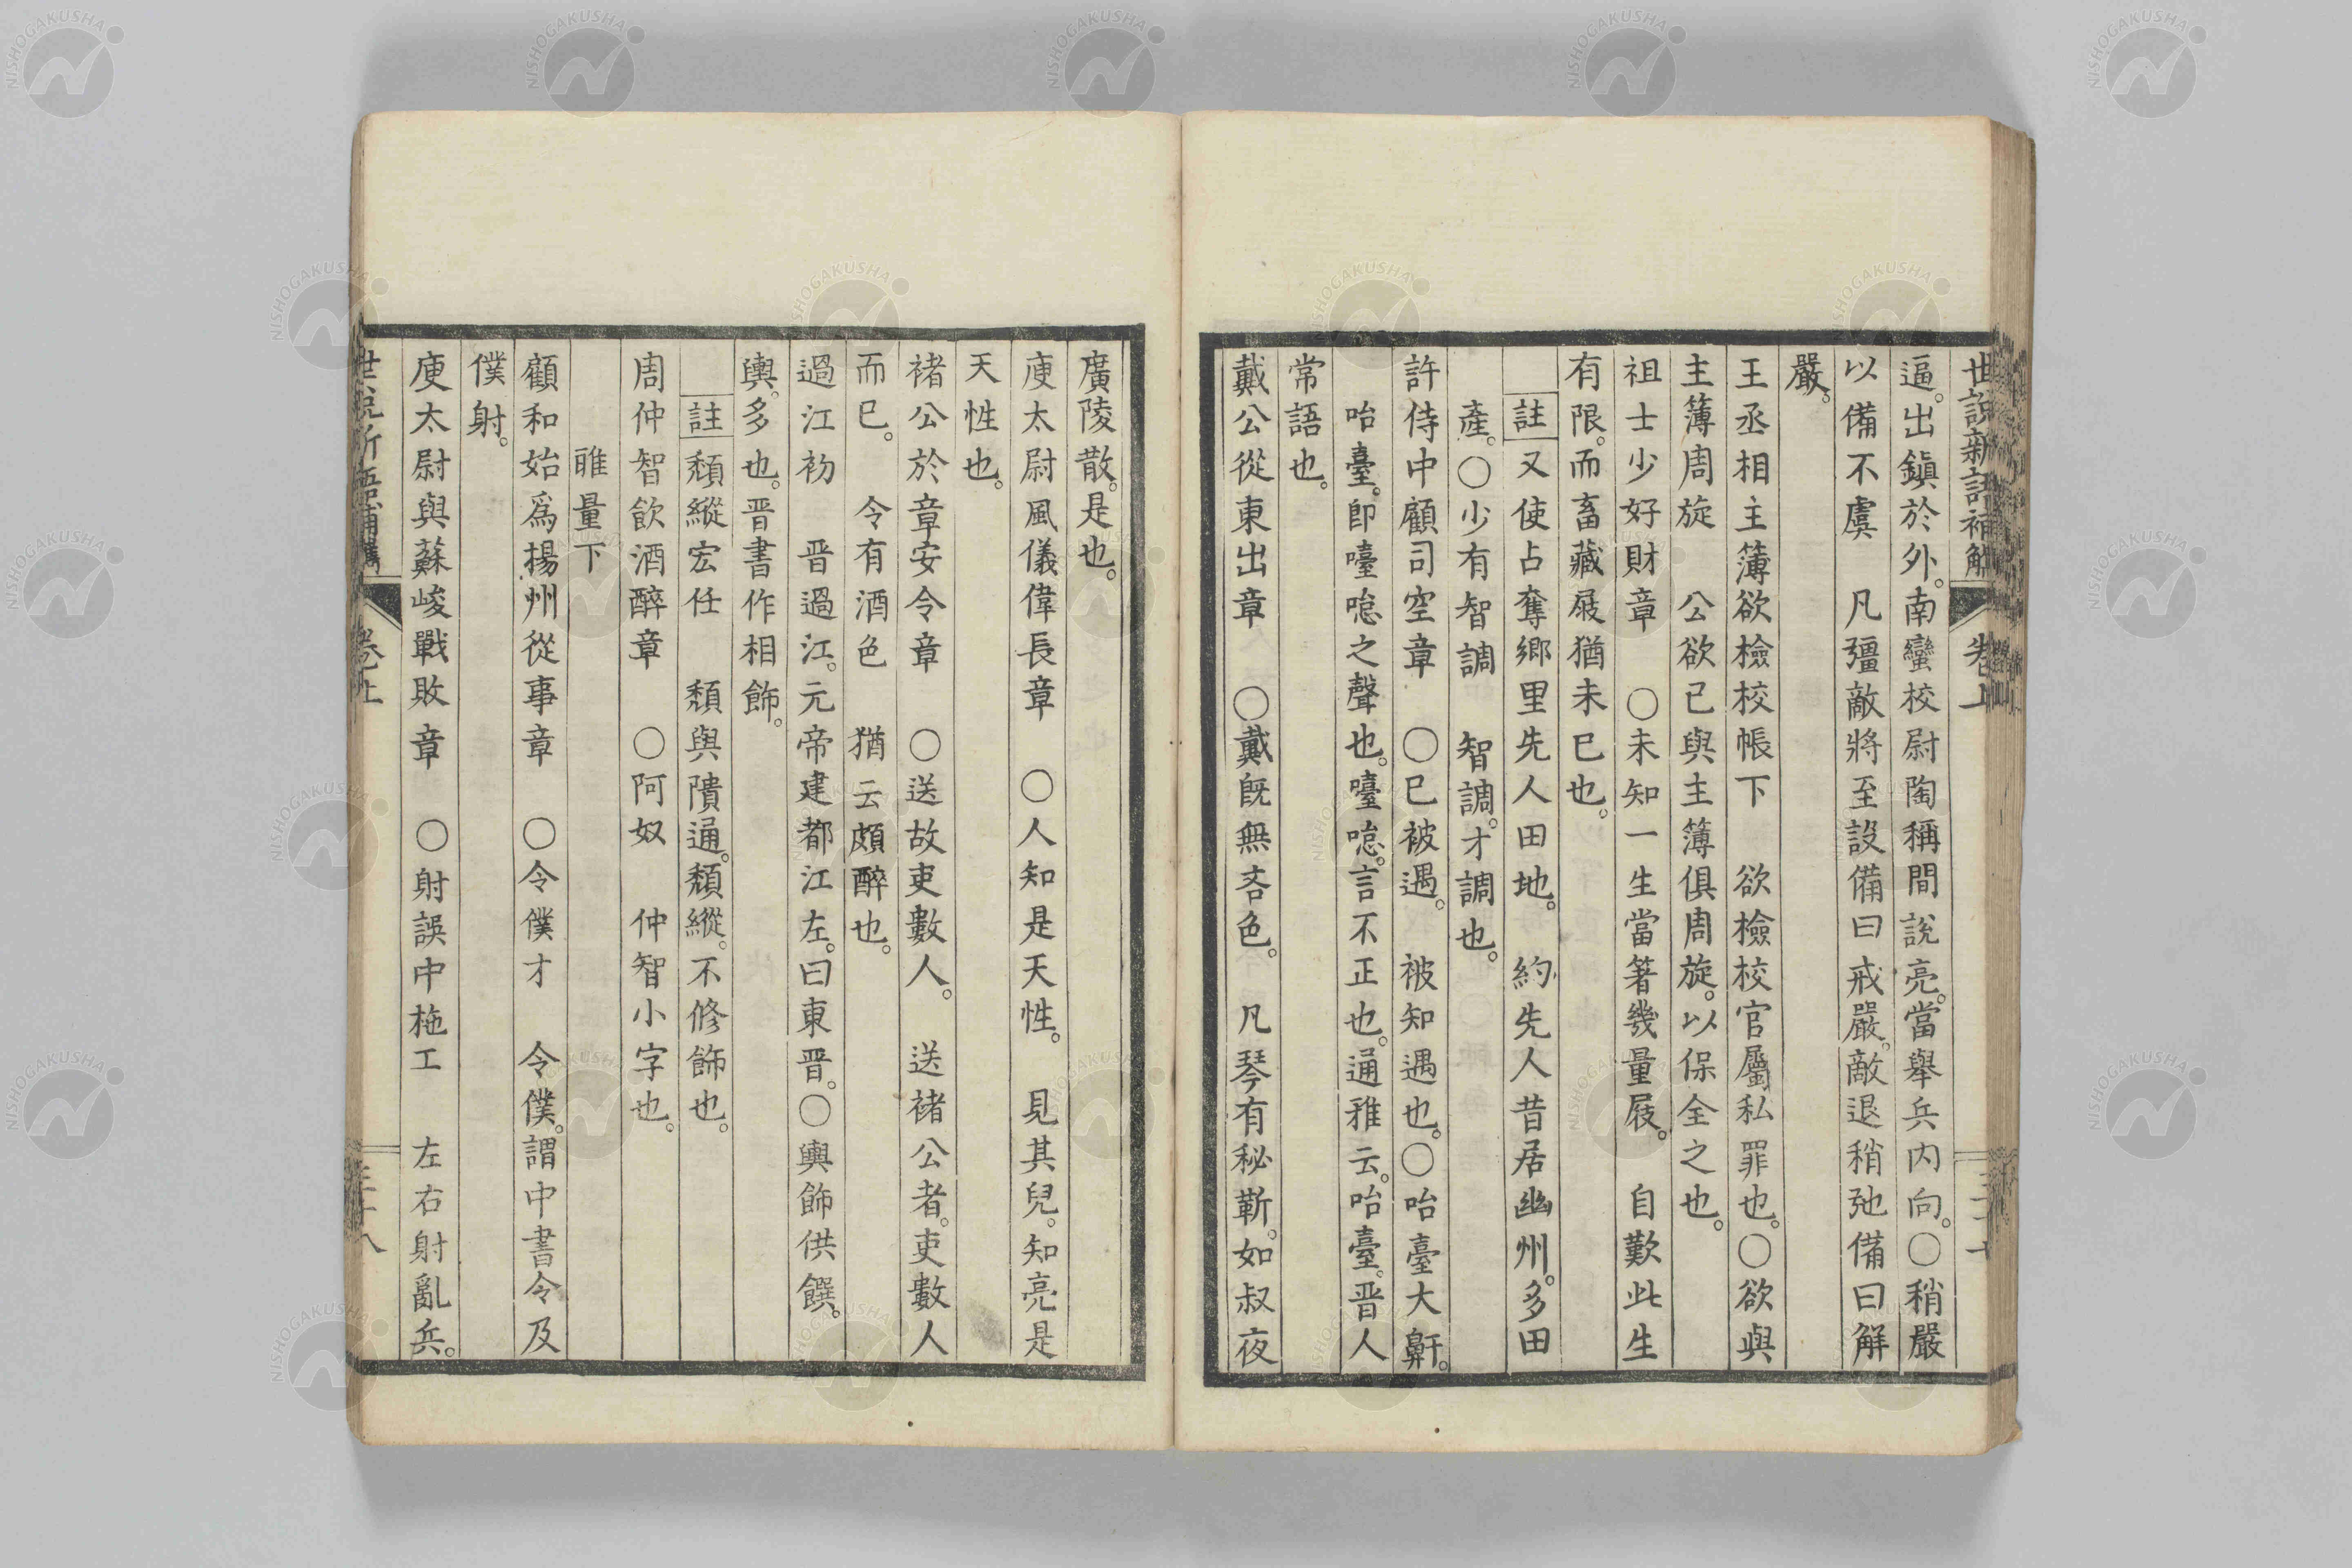 世說新語補解　卷上　二十七
逼。出鎮於外。南蠻校尉陶稱間說亮。當舉兵內向。〇稍嚴
以備不虞　凡彊敵將至設備曰戒嚴。敵退稍弛備曰解
嚴。
王丞相主簿欲檢校帳下　欲檢校官屬私罪也。〇欲與
主簿周旋　公欲已與主簿俱周旋。以保全之也。
祖士少好財章　〇未知一生當著幾量屐。　自歎此生
有限。而畜藏屐猶未已也。
註又使占奪鄉里先人田地。　約先人昔居幽州。多田
產。〇少有智調　智調。才調也。
許侍中顧司空章　〇已被遇。　被知遇也。〇咍臺大鼾。
咍臺。即嚏嚏唿之聲也。嚏唿。言不正也。通雅云。咍臺。晉人
常語也。
戴公從東出章　〇戴既無吝色。　凡琴有秘靳。如叔夜
廣陵散。是也。
庾太尉風儀偉長章　〇人知是天性。　見其兒。知亮是
天性也。
褚公於章安令章　〇送故吏數人。　送褚公者。吏數人
而已。　令有酒色　猶云頗醉也。
過江初　晉過江。元帝建都江左。曰東晉。〇輿飾供饌。
輿。多也。晉書作相飾。
註頹縱宏任　頹與隤通。頹縱。不修飾也。
周仲智飲酒醉章　〇阿奴　仲智小字也。
雅量下
顧和始為揚州從事章　〇令僕才　令僕。謂中書令及
僕射。
庾太尉與蘇峻戰敗章　〇射誤中柂工　左右射亂兵。
卷上　二十八